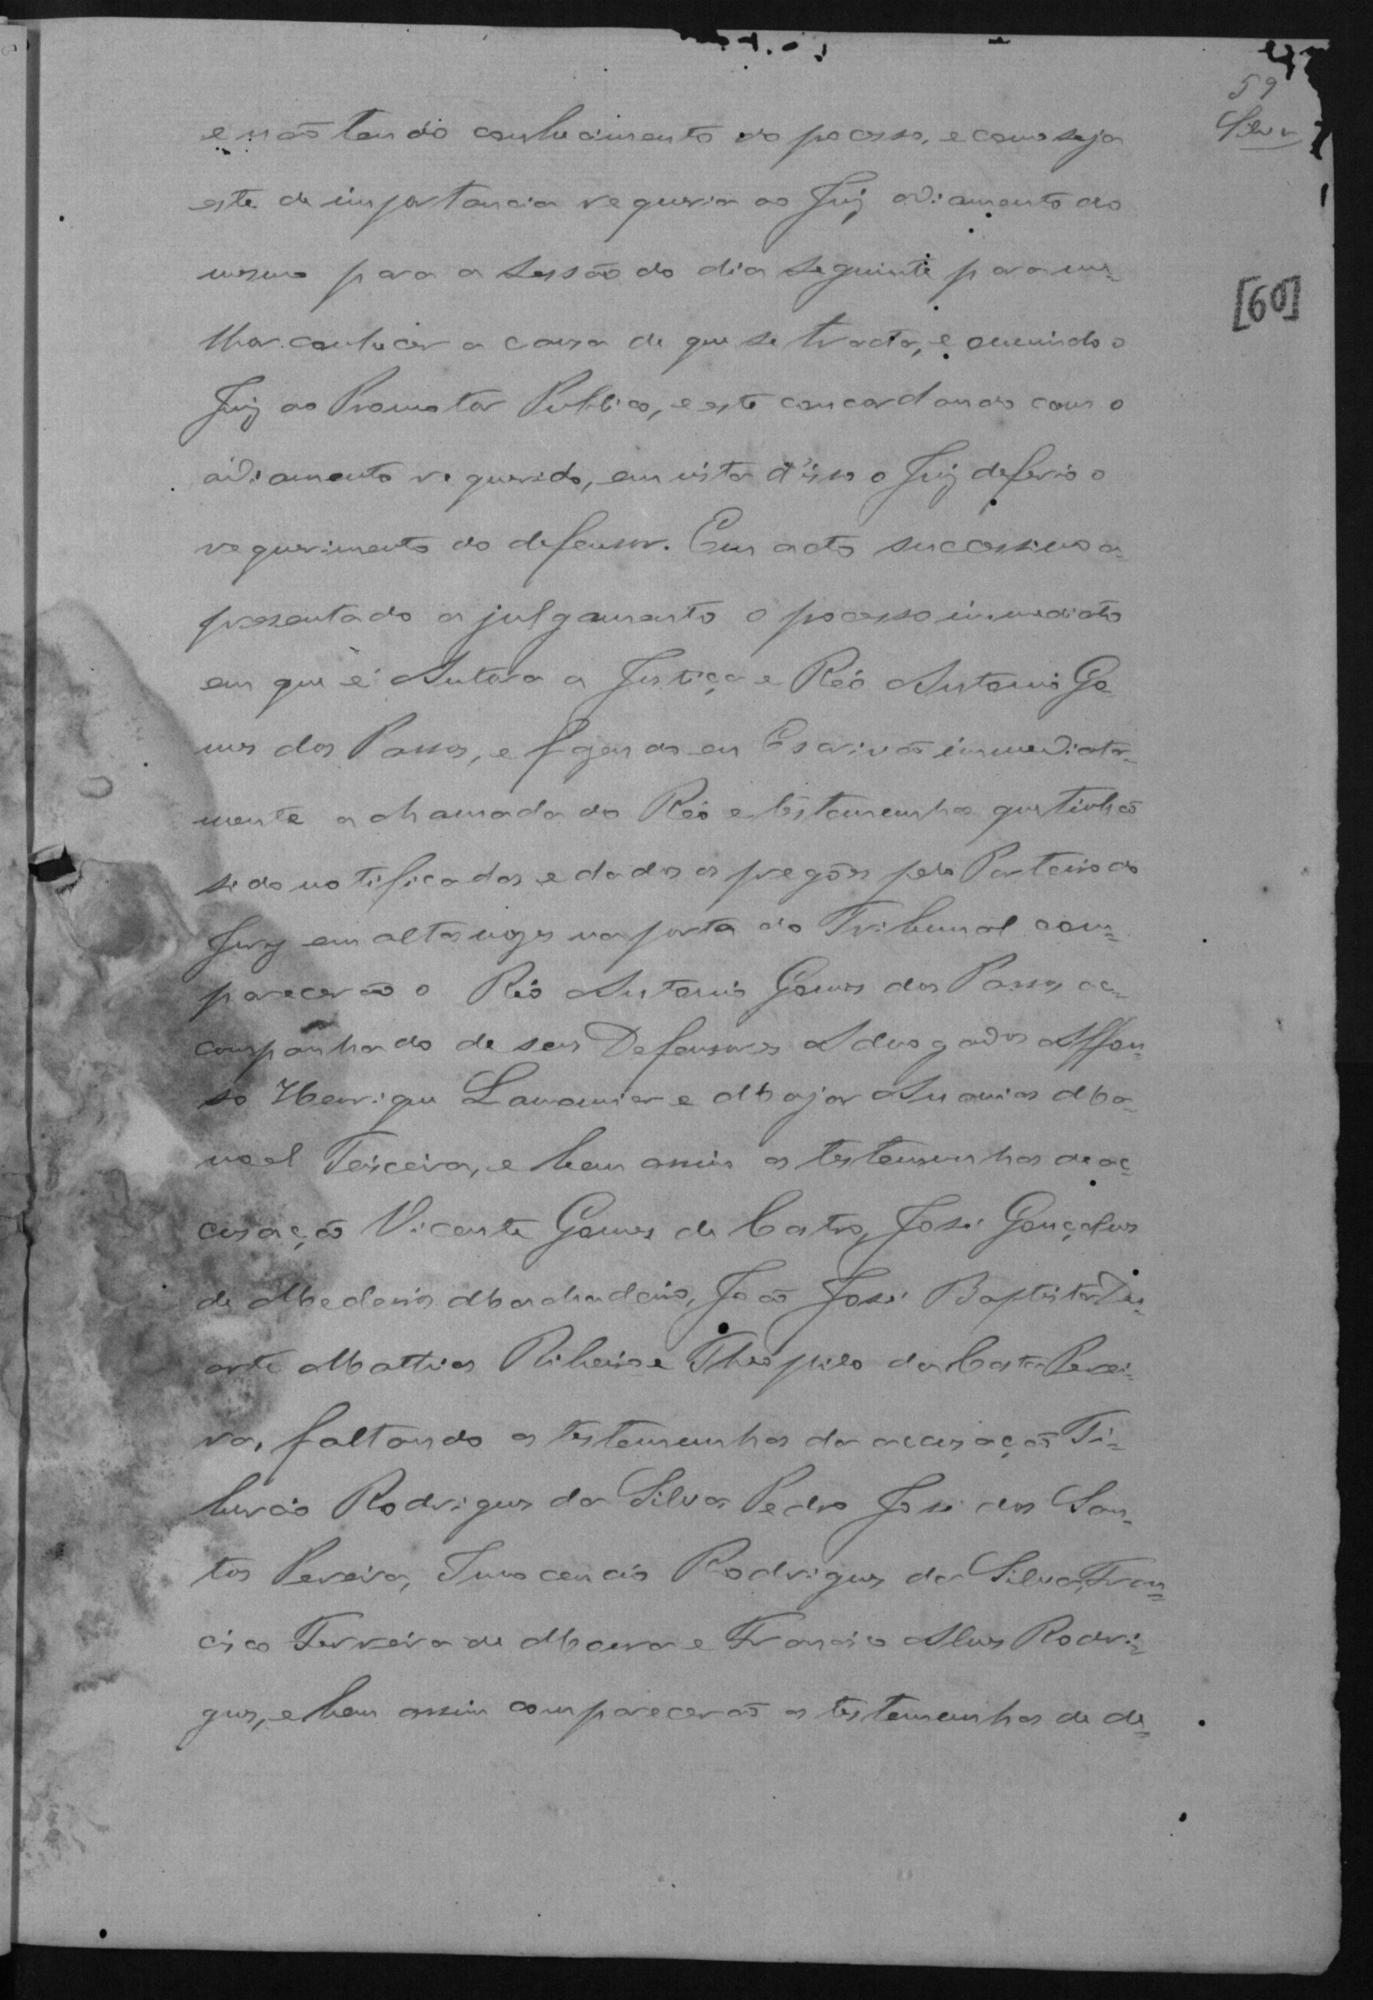 59
Silva
[60]
e não tendo conhecimento do pocesso, e como seja
este de importancia requeria ao Juiz adiamento do
mesmo para a sessão do dia seguinte para me-
lhor conhecer a causa de que se tracta, e ouvindo o
Juiz ao Promotor Publico, e este concordando com o
adiamento requerido, em vista d'isso o Juiz deferio o
requerimento do defensor. Em acto successivo a-
presentado a julgamento o pocesso immediato
em que é Autora a Justiça e Réo Antonio Go-
mes dos Passos, e fazendo eu Escrivão immediata-
mente a chamada do Réo e testemunhas que tinhão
sido notificados e dados os pregões pelo Porteiro do
Jury em altas vozes na porta do Tribunal com-
parecerão o Réo Antonio Gomes dos Passos ac-
companhado de seus Defensores Advogados Affon-
so Henrique e Major Ananias Ma-
noel Teixeira, e bem assim as testemunhas de ac-
cusação Vicente Gomes de Castro, José Gonçalves
de Medeiros Machadeiro, João José Baptista Du-
arte Mathias Ribeiro e Theophilo da Costa Perei-
ra, faltando as testemunhas da accusação Ti-
burcio Rodrigues da Silva Pedro José dos San-
tos Pereira, Innocencio Rodrigues da Silva, Fran-
cisco Ferreira de Moura e Francisco Alves Rodri-
gues, e bem assim comparecerão as testemunhas de de-